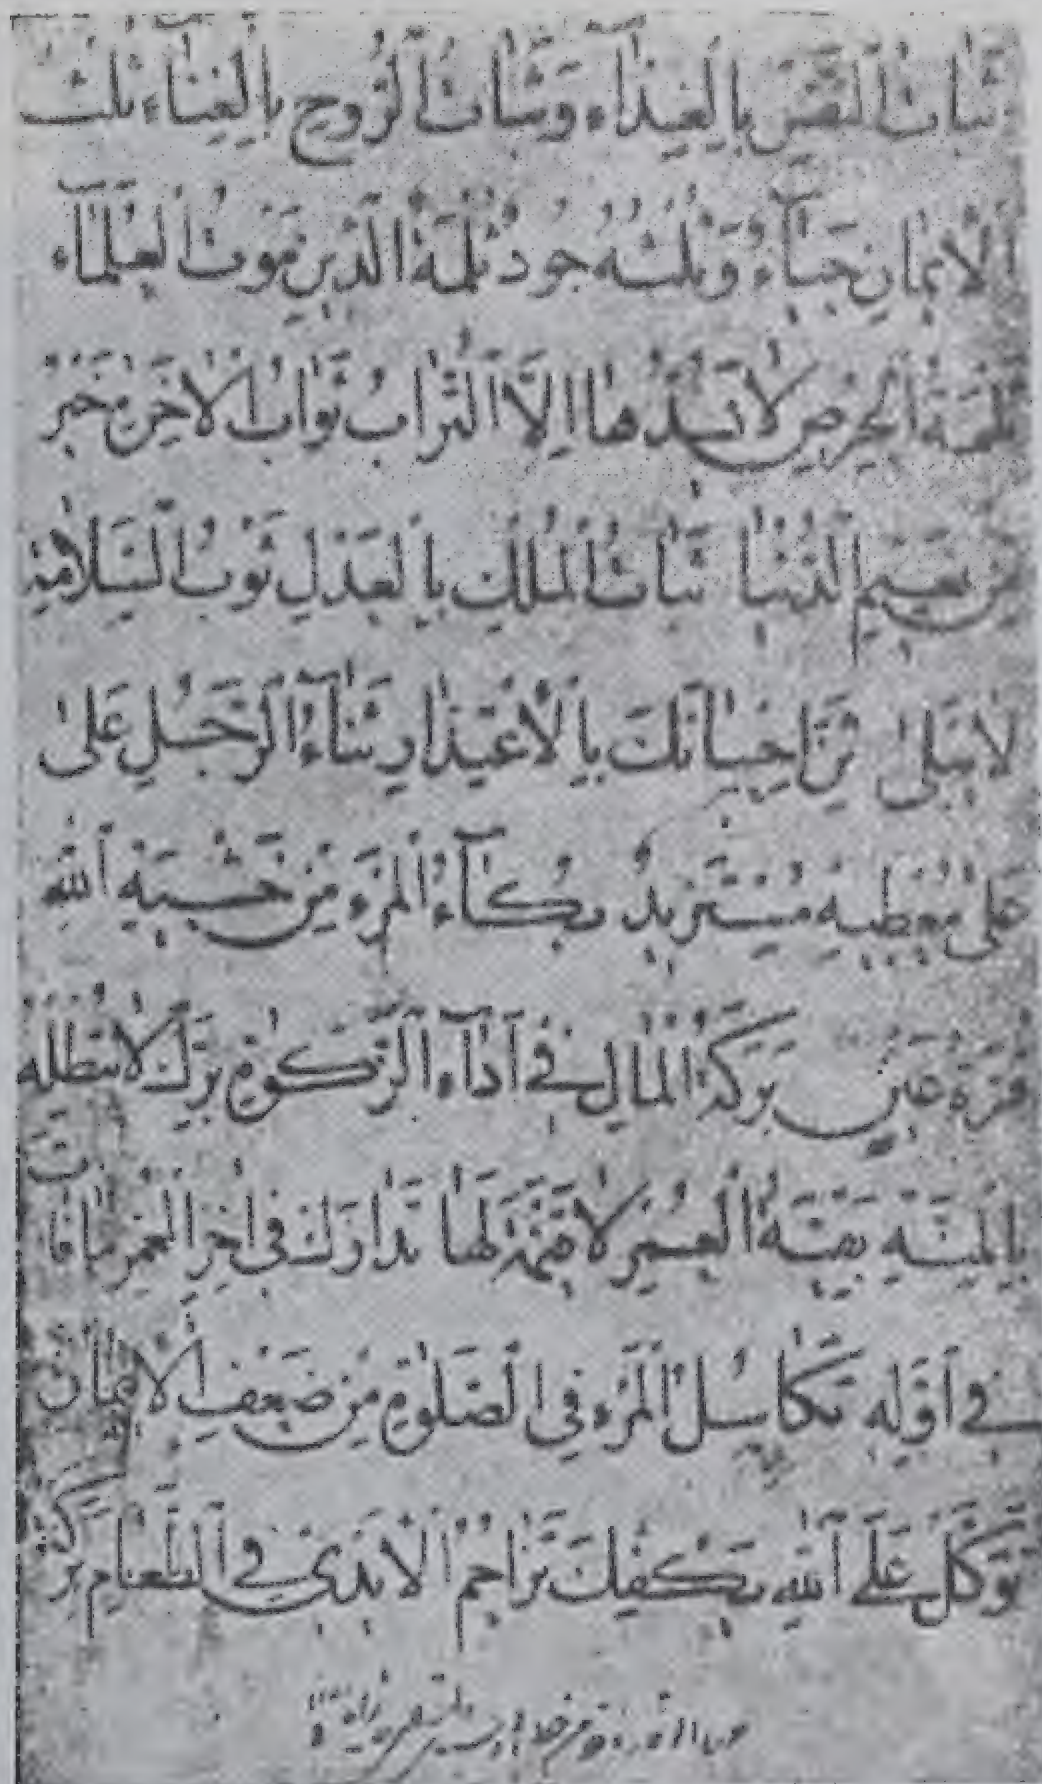 ثَبَاتُ النَّفْسِ بِالْغِذَآءِ وَثَبَاتُ الرُّوحِ بِالْغِنَآءِ ثُلُثُ
اَلْاِيمَانِ حَيَآءٌ وَثُلُثُهُ جُودٌ ثُلْمَةُ الدِّينِ مَوْتُ الْعُلَمَآء
ثُلْمَةُ الْحِرْصِ لَا يَسُدُّهَا اِلَّا التُّرَابُ ثَوَابُ الْاٰخِرَةِ خَيْرٌ
مِنْ نَعِيْمِ الدُّنْيَا ثَبَاتُ الْمُلْكِ بِالْعَدْلِ ثَوْبُ السَّلَامَةِ
لَا يَبْلٰى ثَنِّ اِحْسَانَكَ بِالْاِعْتِذَارِ ثَنَآءُ الرَّجُلِ عَلٰى
عَلٰى مُعْطِيهِ مُسْتَزِيدٌ بُكَآءُ الْمَرْءِ مِنْ خَشْيَةِ اللهِ
قُرَّةُ عَيْنٍ بَرَكَةُ الْمَالِ فِى اَدَآءِ الزَّكٰوةِ بِرَّكَ لَا تُبْطِلْهُ
بِالْمِنَّةِ بَقِيَّةُ الْعُمْرِ لَا قِيمَةَ لَهَا تَدَارَكْ فِى اٰخِرِ الْعُمْرِ مَا فَاتَ
فِى اَوَّلِهِ تَكَاسُلُ الْمَرْءِ فِى الصَّلٰوةِ مِنْ ضَعْفِ الْاِيمَانِ
تَوَكَّلْ عَلَى اللهِ يَكْفِيكَ تَزَاحُمُ الْاَيْدِى فِى الطَّعَامِ بَرَكَةٌ